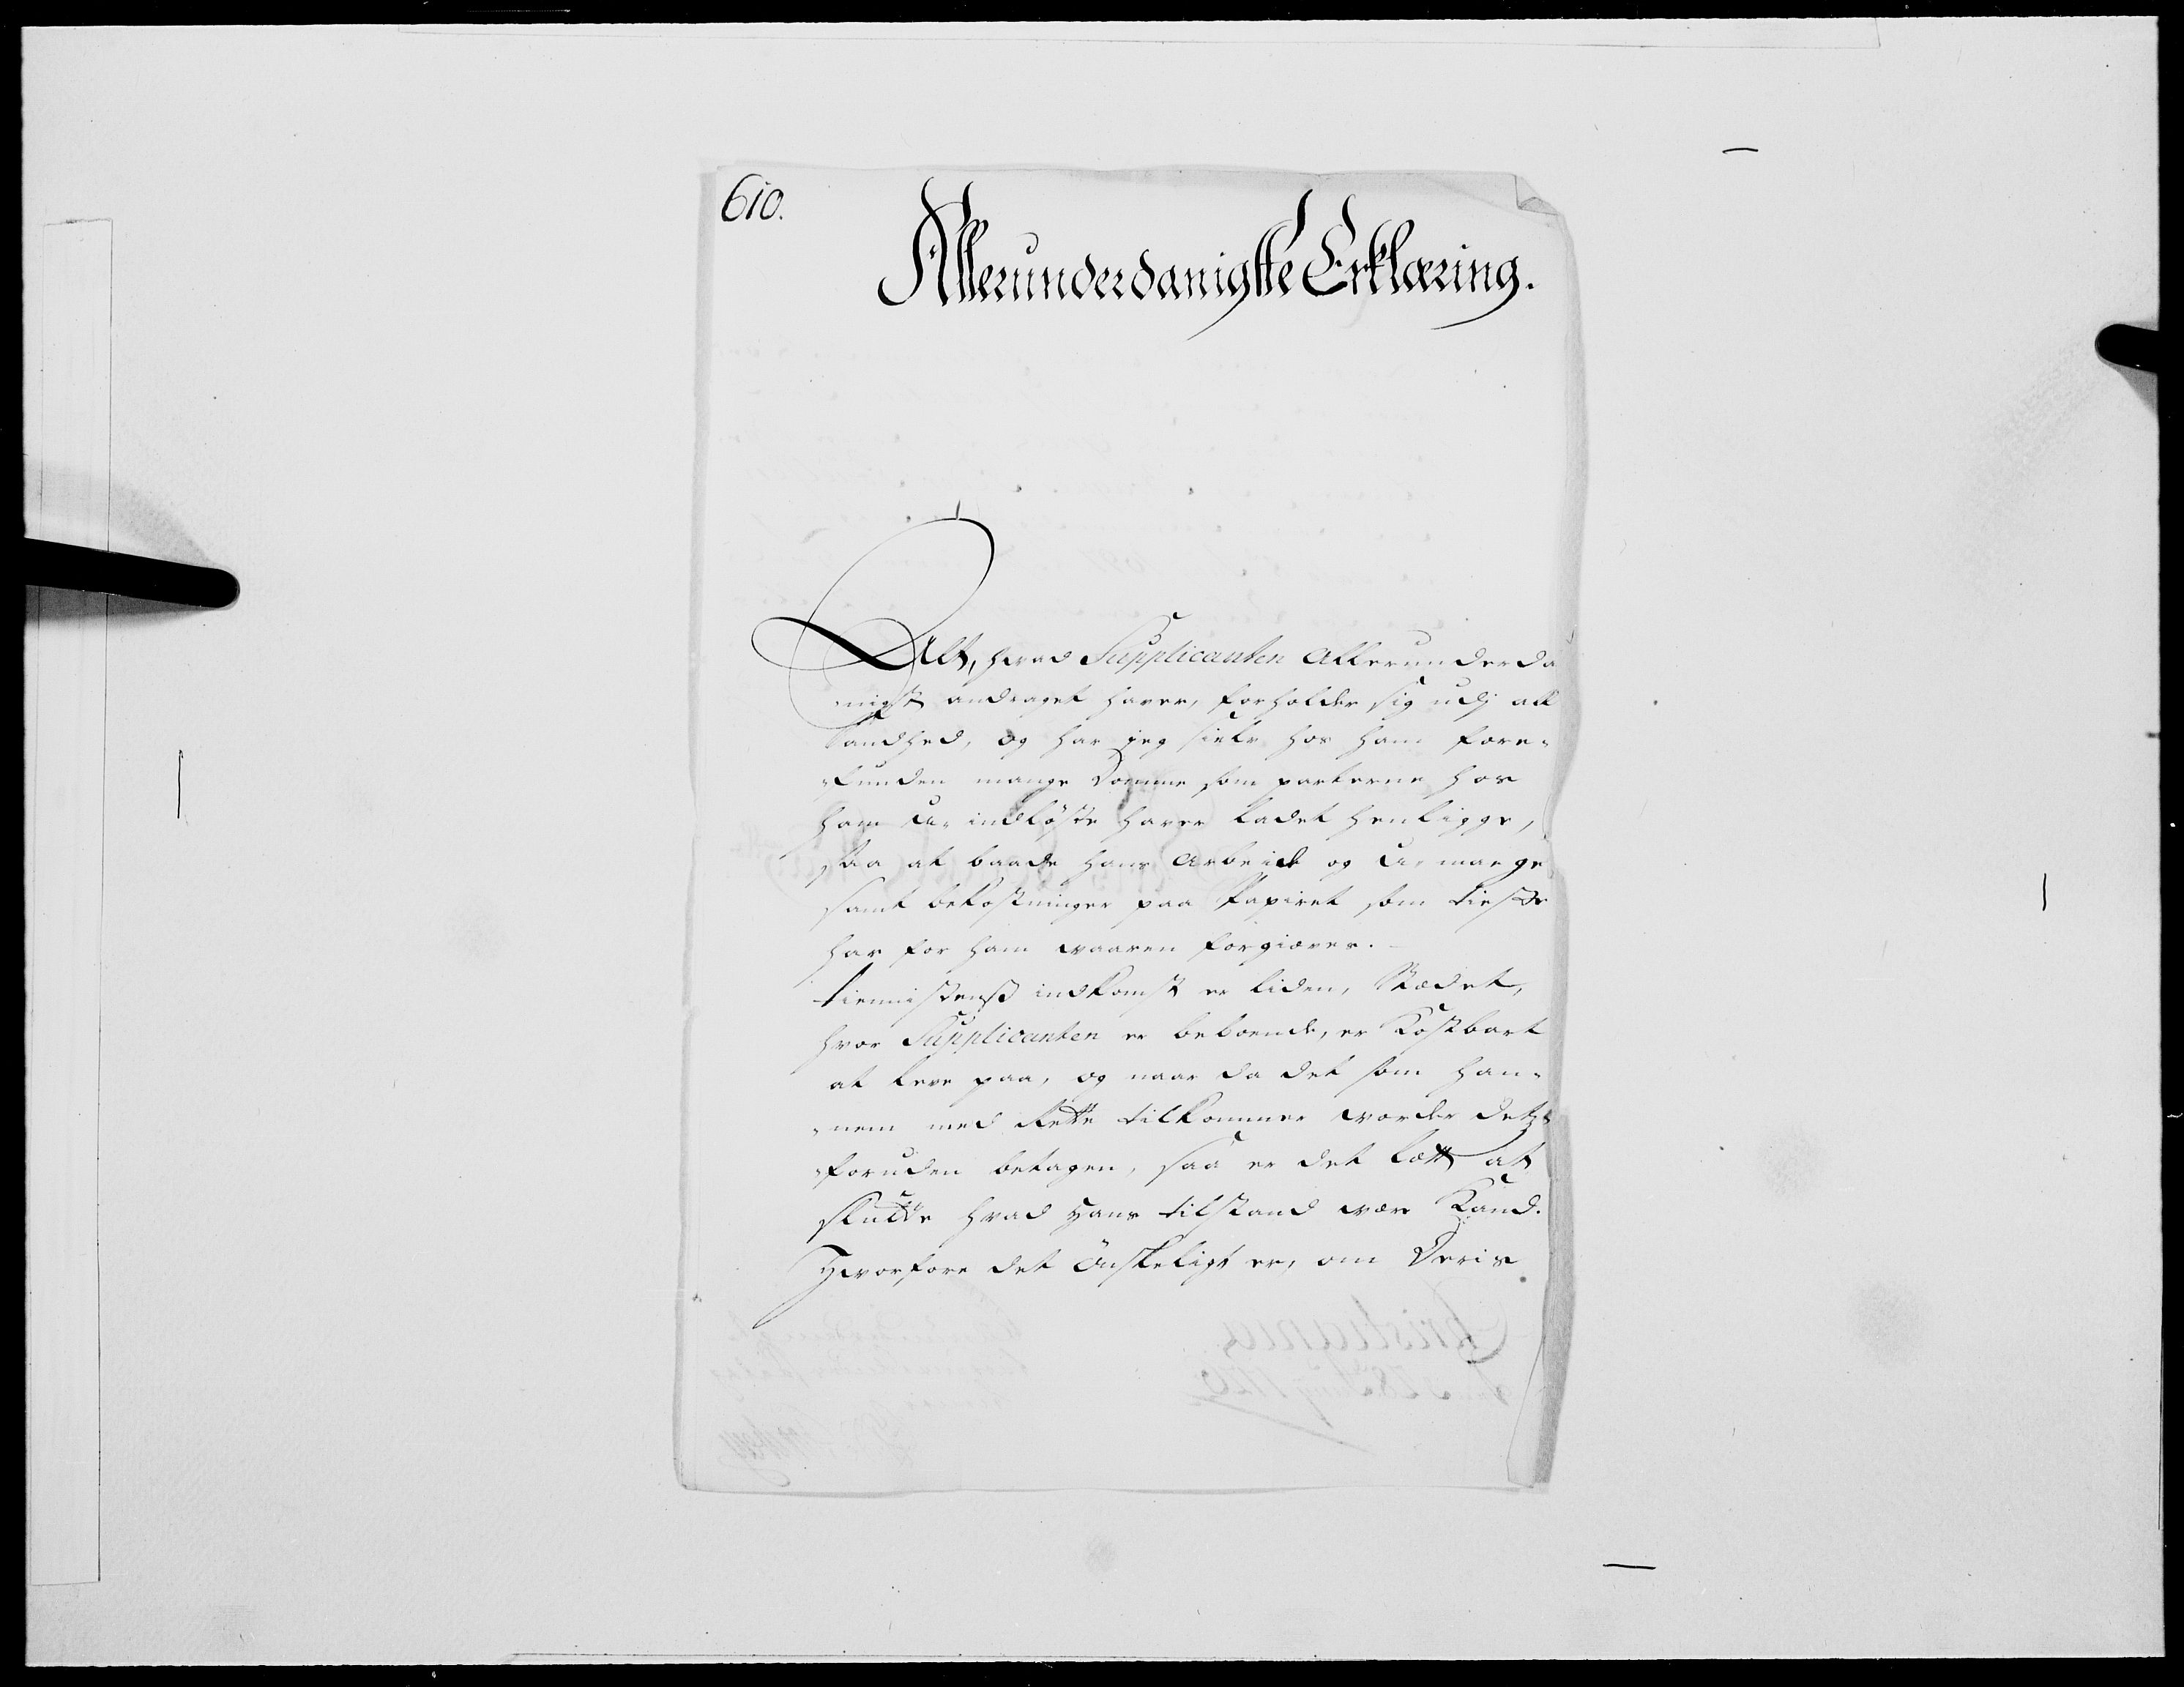 610.
Allerunderdanigste Erklæring.
Alt, hvad Supplicanten Allerunderda
nigst andraget haver, forholder sig udj all
Sandhed, og har jeg sielv hos ham fore-
funden mange Domme som parterne hos
ham u-indløste haver ladet henligge,
saa at baade hans Arbeide og u-mage
samt bekostninger paa Papiret som tieste
har for ham vaaren forgiæves.
Tiennistens indkomst er liden, Stædet,
hvor Supplicanten er boende, er Kostbart
at leve paa, og naar da det som han-
nem med Rette tilkommer vorder detz
foruden betagen, saa er det lætt at
slutte hvad Hans tilstand være Kand.
Hvorfore det Ønskeligt er, om Deris